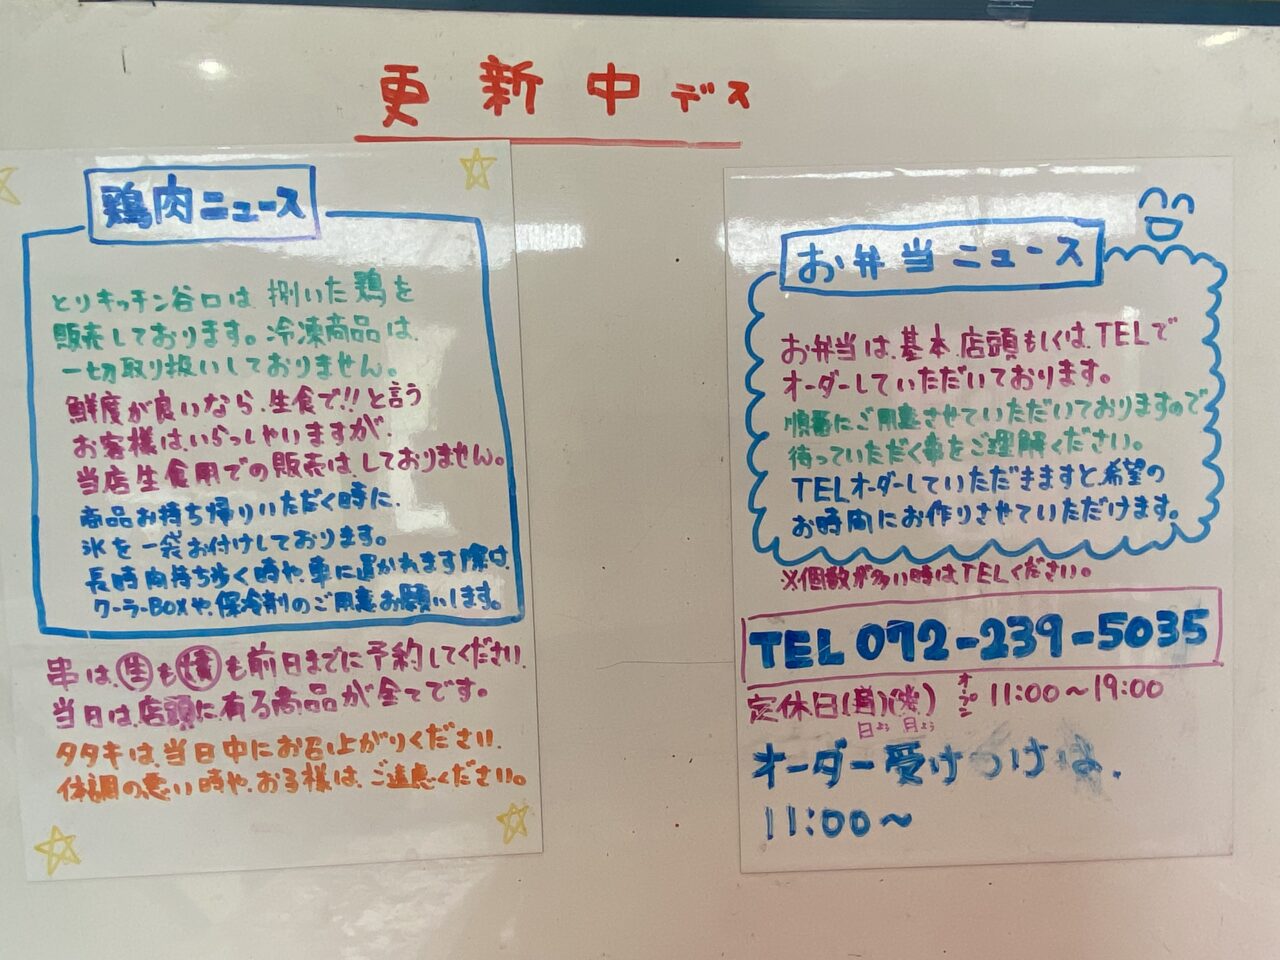 更新中デス
鶏肉ニュース
とりキッチン谷口は、捌いた鶏を
販売しております。冷凍商品は、
一切取り扱いしておりません。
鮮度が良いなら、生食で!!と言う
お客様は、いらっしゃいますが、
当店生食用での販売は、しておりません。
商品お持ち帰りいただく時に、
氷を一袋お付けしております。
長時間持ち歩く時や、車に置かれます際は、
クーラーBOXや、保冷剤のご用意お願いします。
串は、生も焼も前日までに予約してください。
当日は、店頭に有る商品が全てです。
タタキは、当日中にお召上がりください。
体調の悪い時や、お子様は、ご遠慮ください。
お弁当ニュース
お弁当は、基本、店頭もしくは、TELで
オーダーしていただいております。
順番にご用意させていただいておりますので
待っていただく事をご理解ください。
TELオーダーしていただきますと、希望の
お時間にお作りさせていただけます。
※個数が多い時は、TELください。
TEL 072-239-5035
定休日(日)(月) オープン 11:00〜19:00
日よう 月よう
オーダー受けつけは、
11:00〜